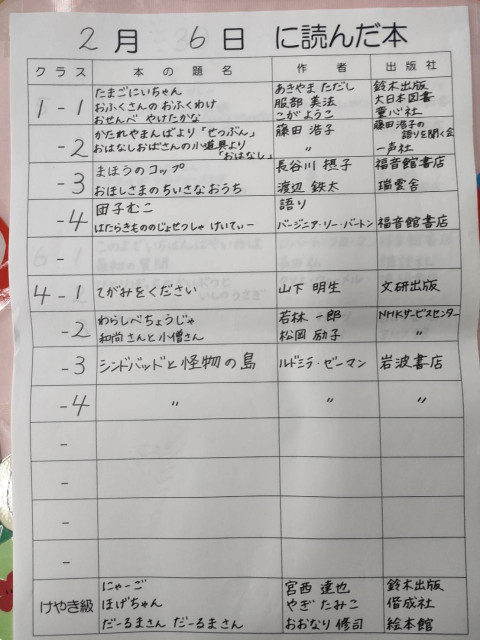 2月 6日 に読んだ本
クラス 本の題名 作者 出版社
1-1 たまごにいちゃん あきやまただし 鈴木出版
おふくさんのおふくわけ 服部美法 大日本図書
おせんべ やけたかな こがようこ 童心社
-2 かたれやまんばより「せつぶん」 藤田浩子 藤田浩子の語りを聞く会
おはなしおばさんの小道具より「おはなし」 〃 一声社
-3 まほうのコップ 長谷川摂子 福音館書店
おほしさまのちいさなおうち 渡辺鉄太 瑞雲舎
-4 団子むこ 語り
はたらきもののじょせつしゃ けいてぃー バージニア・リー・バートン 福音館書店
-
4-1 てがみをください 山下明生 文研出版
-2 わらしべちょうじゃ 若林一郎 NHKサービスセンター
和尚さんと小僧さん 松岡励子 〃
-3 シンドバッドと怪物の島 ルドミラ・ゼーマン 岩波書店
-4 〃 〃 〃
-
-
-
-
けやき級 にゃーご 宮西達也 鈴木出版
ほげちゃん やぎたみこ 偕成社
だーるまさん だーるまさん おおなり修司 絵本館